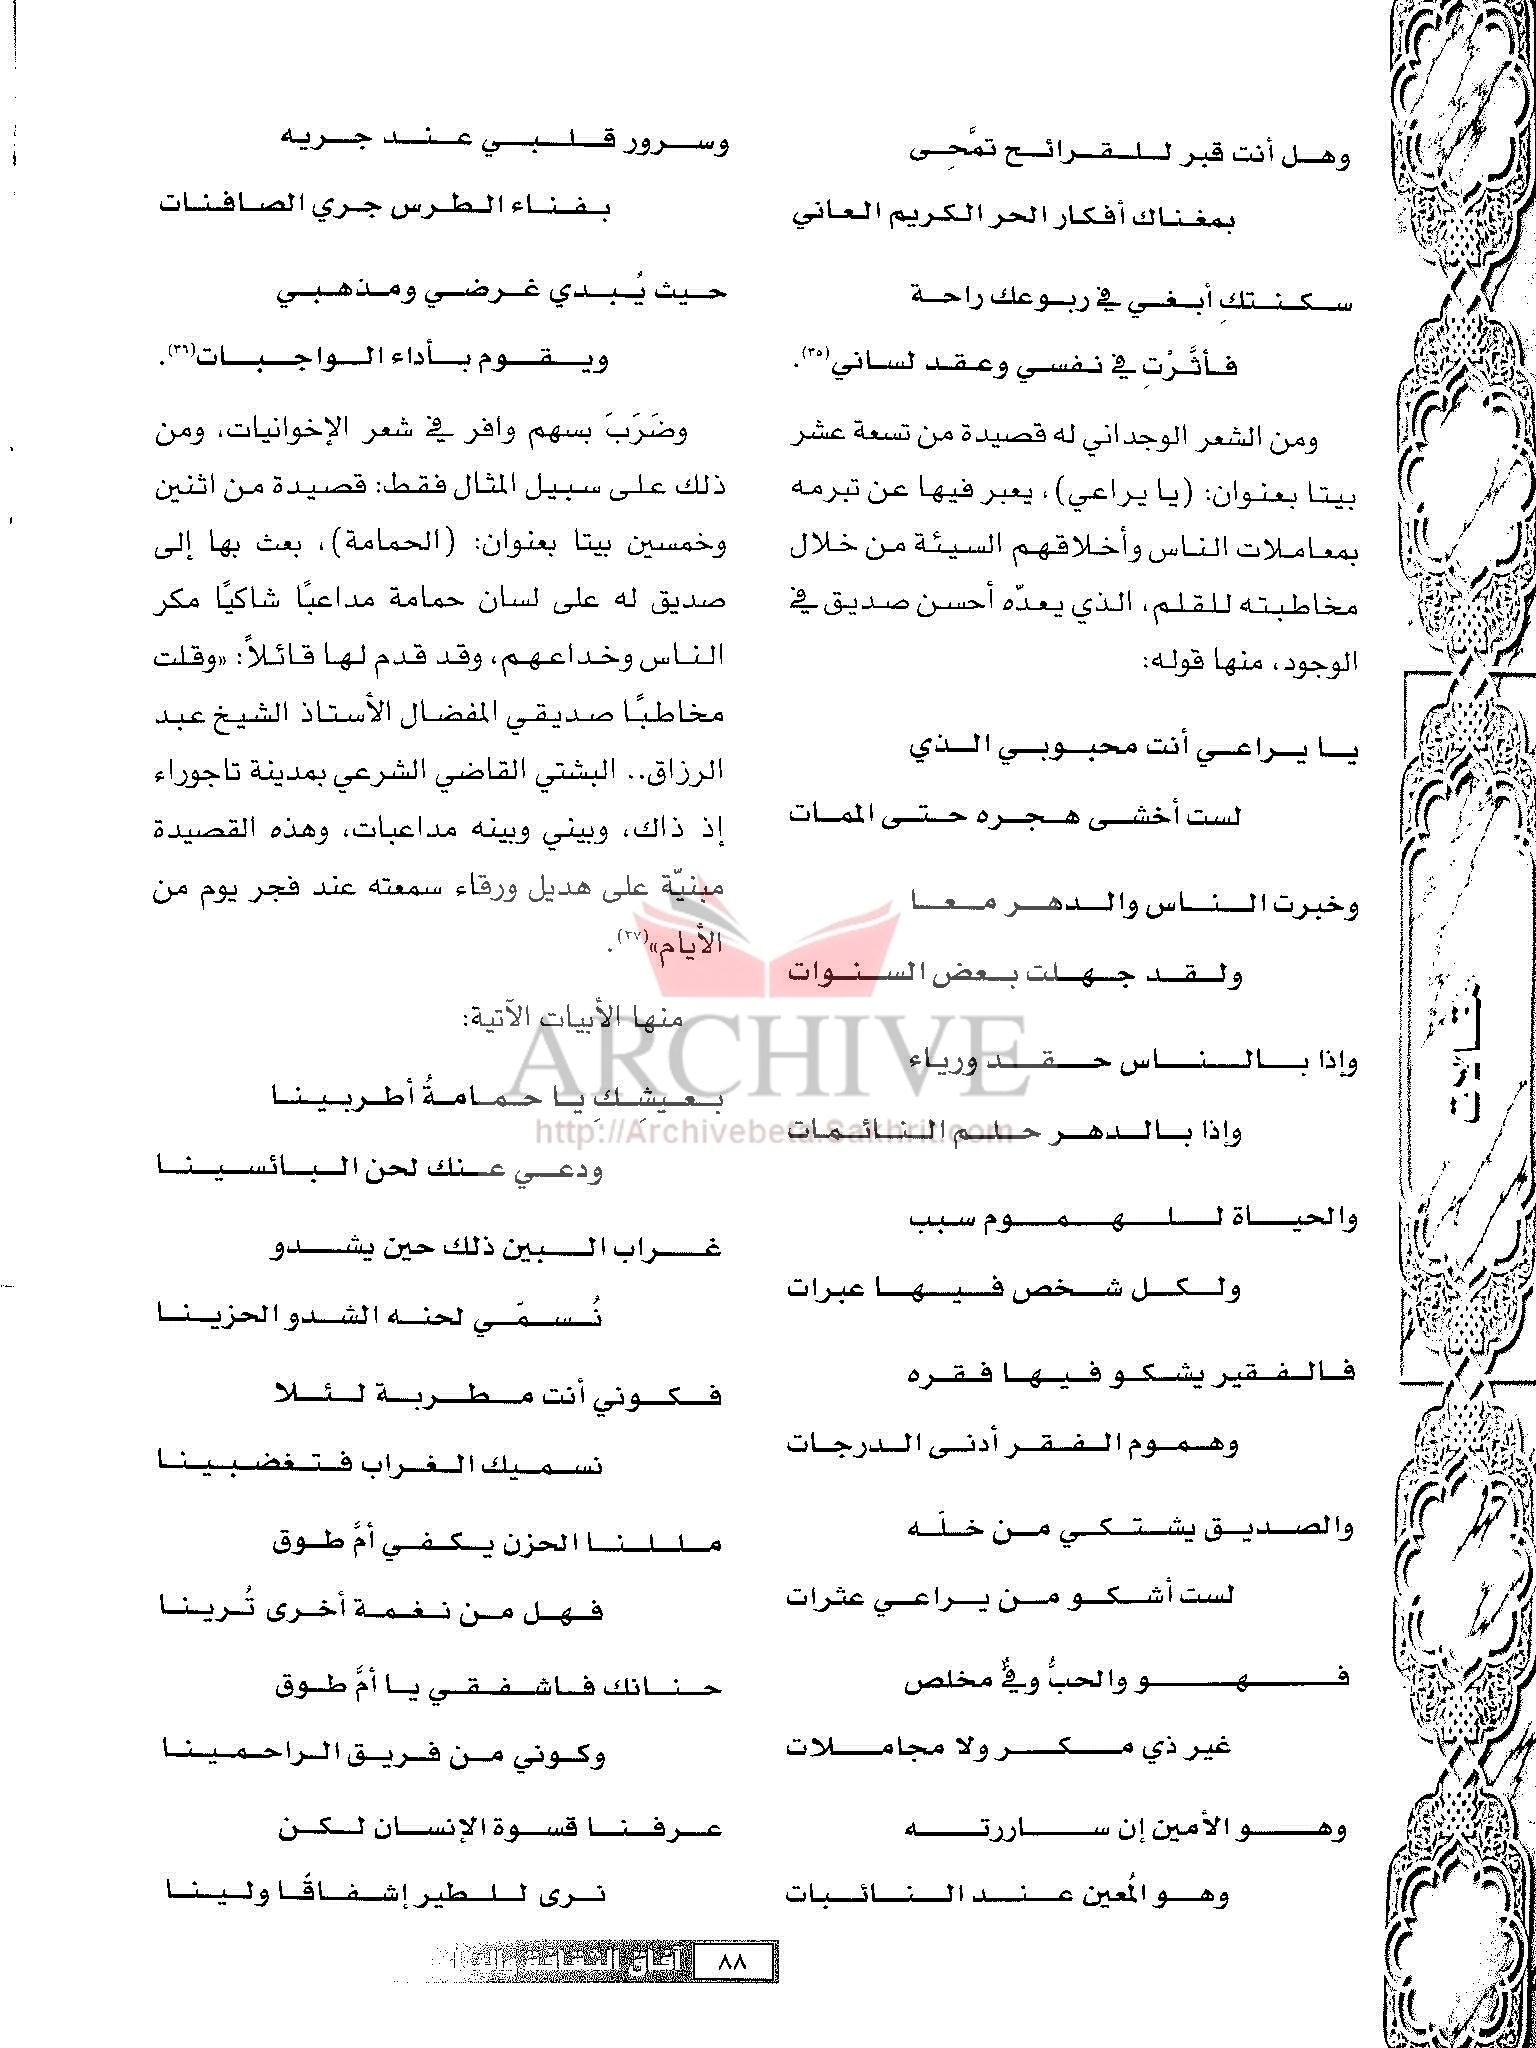 وهل أنت قبر للقرائح تمَّحِى
بمغناك أفكار الحر الكريم العاني
سكنتكِ أبغي في ربوعك راحة
فأثَّرْتِ في نفسي وعقد لساني(٣٥).
ومن الشعر الوجداني له قصيدة من تسعة عشر
بيتا بعنوان: (يا يراعي)، يعبر فيها عن تبرمه
بمعاملات الناس وأخلاقهم السيئة من خلال
مخاطبته للقلم، الذي يعدّه أحسن صديق في
الوجود، منها قوله:
يا يراعي أنت محبوبي الذي
لست أخشى هجره حتى الممات
وخبرت الناس والدهر معا
ولقد جهلت بعض السنوات
وإذا بالناس حقد ورياء
وإذا بالدهر حلم النائمات
والحياة للهموم سبب
ولكل شخص فيها عبرات
فالفقير يشكو فيها فقره
وهموم الفقر أدنى الدرجات
والصديق يشتكي من خلّه
لست أشكو من يراعي عثرات
فهو والحبُّ وفيٌّ مخلص
غير ذي مكر ولا مجاملات
وهو الأمين إن ساررته
وهو المُعين عند النائبات
وسرور قلبي عند جريه
بفناء الطرس جري الصافنات
حيث يُبدي غرضي ومذهبي
ويقوم بأداء الواجبات(٣٦).
وضَرَبَ بسهم وافر في شعر الإخوانيات، ومن
ذلك على سبيل المثال فقط: قصيدة من اثنين
وخمسين بيتا بعنوان: (الحمامة)، بعث بها إلى
صديق له على لسان حمامة مداعبًا شاكيًا مكر
الناس وخداعهم، وقد قدم لها قائلاً: «وقلت
مخاطبًا صديقي المفضال الأستاذ الشيخ عبد
الرزاق.. البشتي القاضي الشرعي بمدينة تاجوراء
إذ ذاك، وبيني وبينه مداعبات، وهذه القصيدة
مبنيّة على هديل ورقاء سمعته عند فجر يوم من
الأيام»(٣٧).
منها الأبيات الآتية:
بعيشِكِ يا حمامةُ أطربينا
ودعي عنك لحن البائسينا
غراب البين ذلك حين يشدو
نُسمّي لحنه الشدو الحزينا
فكوني أنت مطربة لئلا
نسميك الغراب فتغضبينا
مللنا الحزن يكفي أمَّ طوق
فهل من نغمة أخرى تُرينا
حنانك فاشفقي يا أمَّ طوق
وكوني من فريق الراحمينا
عرفنا قسوة الإنسان لكن
نرى للطير إشفاقًا ولينا
مقالات
ARCHIVE
http://Archivebeta.Sakhrit.com
٨٨ آفاق الثقافة